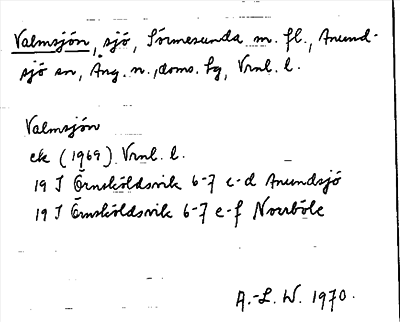 Valmsjön, sjö, Sörmesunda m. fl., Anund-
sjö sn, Ång. n., doms. hg, Vrnl. l.
Valmsjön
ek (1969) Vrnl. l.
19 J Örnsköldsvik 6-7 c-d Anundsjö
19 J Örnsköldsvik 6-7 e-f Norrböle
A.-L. W. 1970.